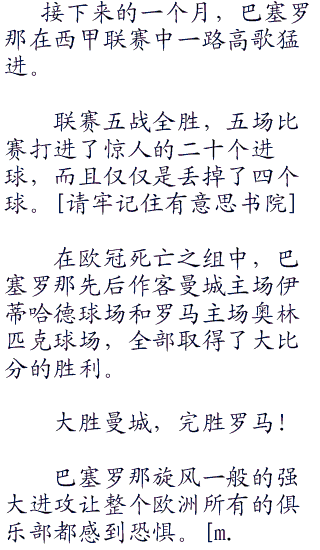 接下来的一个月，巴塞罗
那在西甲联赛中一路高歌猛
进。
联赛五战全胜，五场比
赛打进了惊人的二十个进
球，而且仅仅是丢掉了四个
球。[请牢记住有意思书院]
在欧冠死亡之组中，巴
塞罗那先后作客曼城主场伊
蒂哈德球场和罗马主场奥林
匹克球场，全部取得了大比
分的胜利。
大胜曼城，完胜罗马！
巴塞罗那旋风一般的强
大进攻让整个欧洲所有的俱
乐部都感到恐惧。[m.